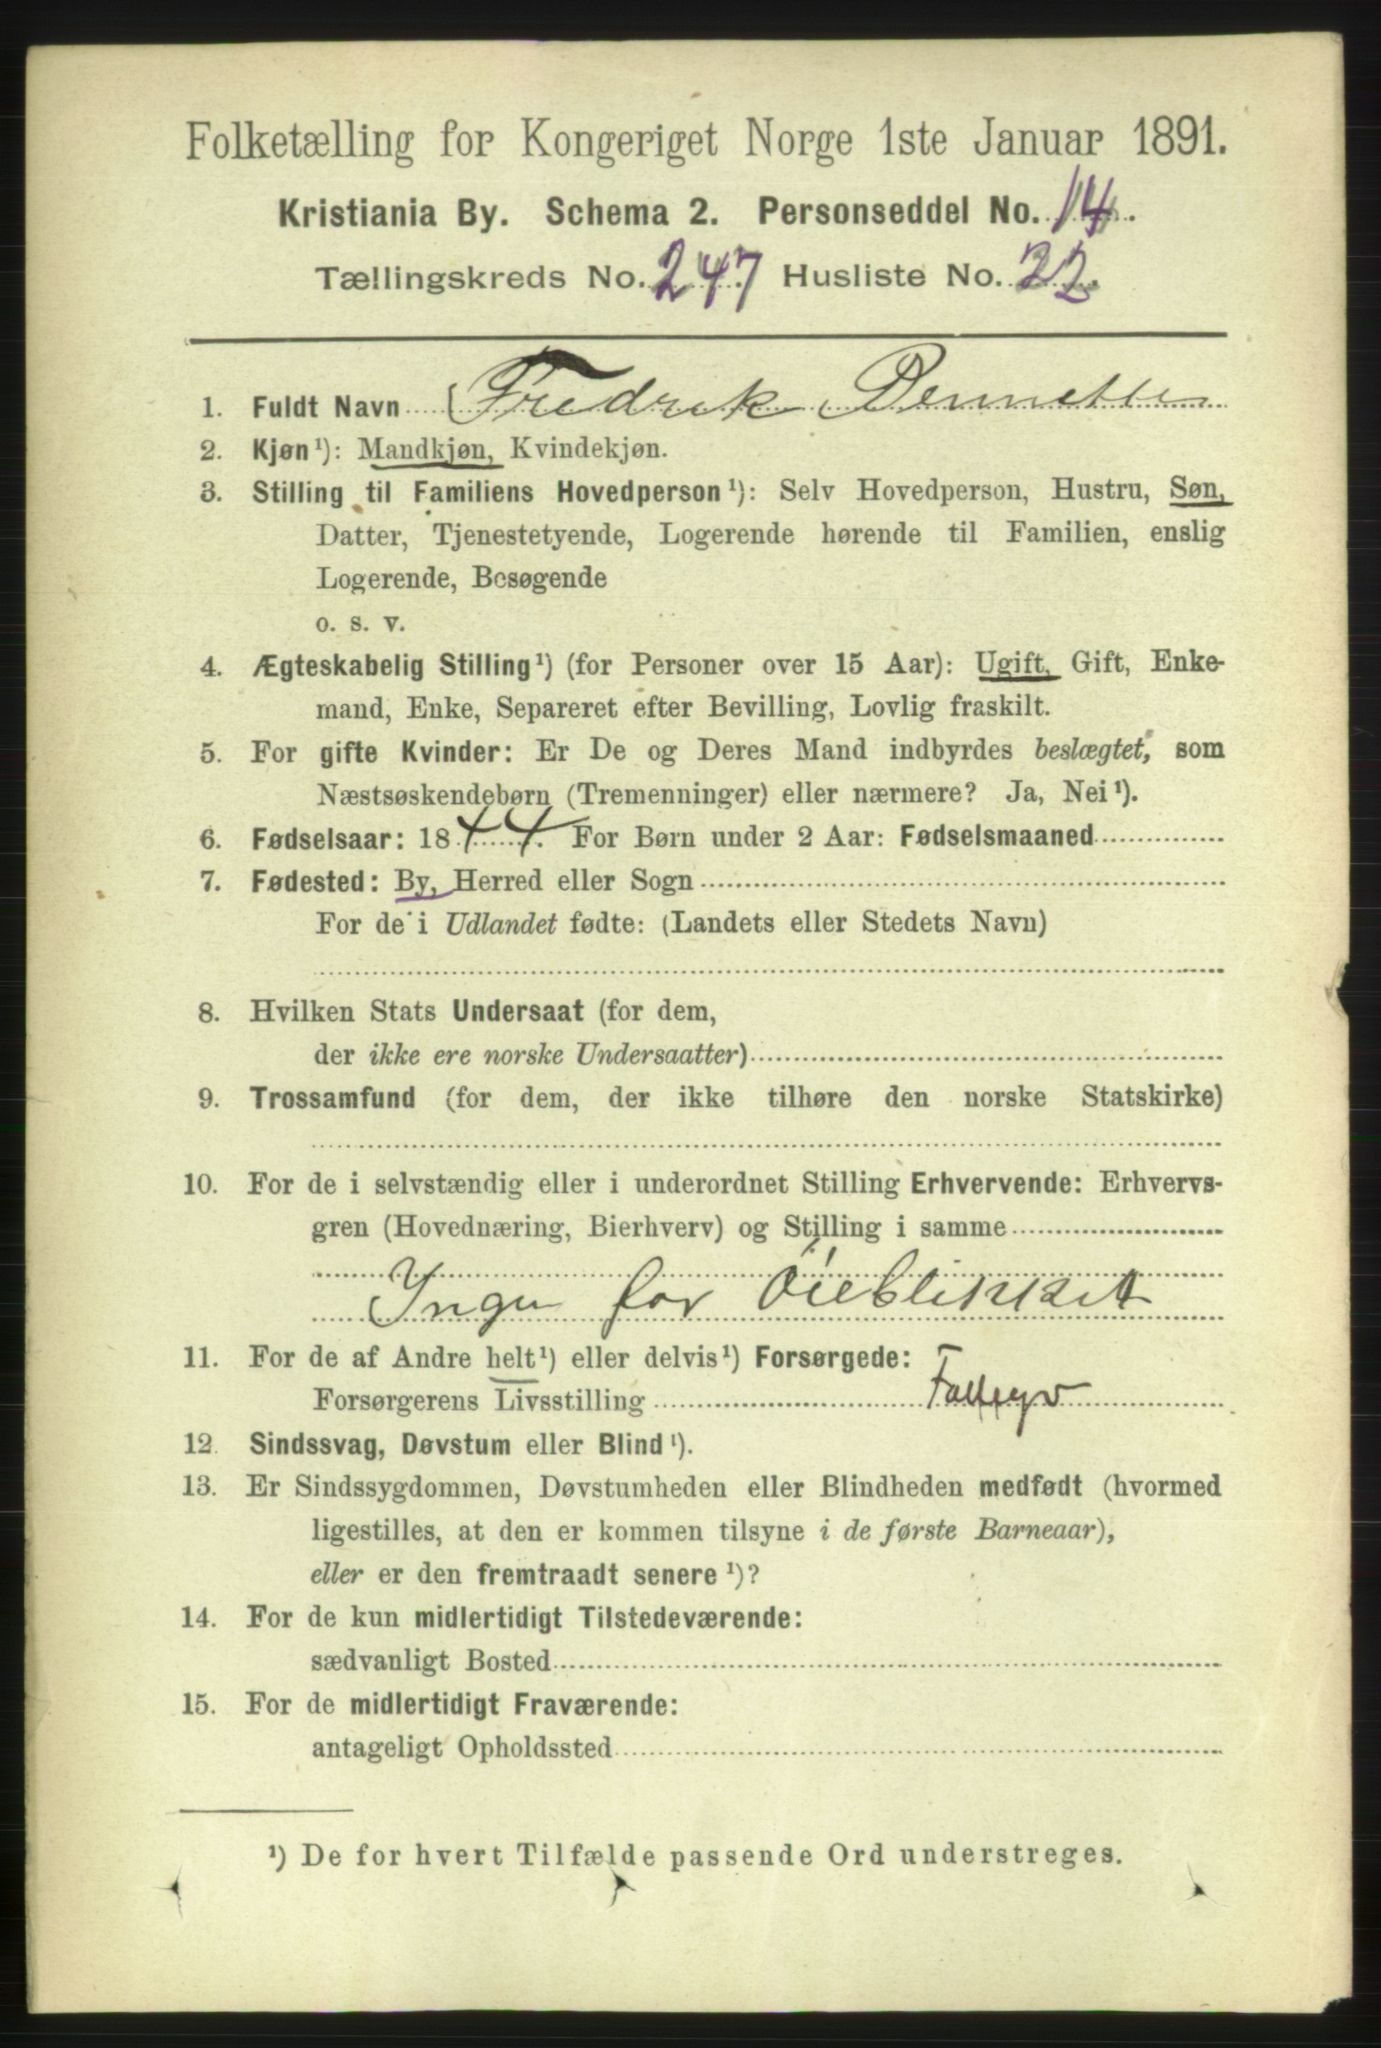 Folketælling for Kongeriget Norge 1ste Januar 1891.
Kristiania By. Schema 2. Personseddel No. 14.
Tællingskreds No. 247 Husliste No. 22.
1. Fuldt Navn Fredrek
2. Kjøn¹): Mandkjøn, Kvindekjøn.
3. Stilling til Familiens Hovedperson¹): Selv Hovedperson, Hustru, Søn,
Datter, Tjenestetyende, Logerende hørende til Familien, enslig
Logerende, Besøgende
o. s. v.
4. Ægteskabelig Stilling¹) (for Personer over 15 Aar): Ugift, Gift, Enke-
mand, Enke, Separeret efter Bevilling, Lovlig fraskilt.
5. For gifte Kvinder: Er De og Deres Mand indbyrdes beslægtet, som
Næstsøskendebørn (Tremenninger) eller nærmere? Ja, Nei¹).
6. Fødselsaar: 1844. For Børn under 2 Aar: Fødselsmaaned
7. Fødested: By, Herred eller Sogn
For de i Udlandet fødte: (Landets eller Stedets Navn)
8. Hvilken Stats Undersaat (for dem,
der ikke ere norske Undersaatter)
9. Trossamfund (for dem, der ikke tilhøre den norske Statskirke)
10. For de i selvstændig eller i underordnet Stilling Erhvervende: Erhvervs-
gren (Hovednæring, Bierhverv) og Stilling i samme
Ingen for Öieblikket
11. For de af Andre helt¹) eller delvis¹) Forsørgede:
Forsørgerens Livsstilling
12. Sindssvag, Døvstum eller Blind¹).
13. Er Sindssygdommen, Døvstumheden eller Blindheden medfødt (hvormed
ligestilles, at den er kommen tilsyne i de første Barneaar),
eller er den fremtraadt senere¹)?
14. For de kun midlertidigt Tilstedeværende:
sædvanligt Bosted
15. For de midlertidigt Fraværende:
antageligt Opholdssted
¹) De for hvert Tilfælde passende Ord understreges.